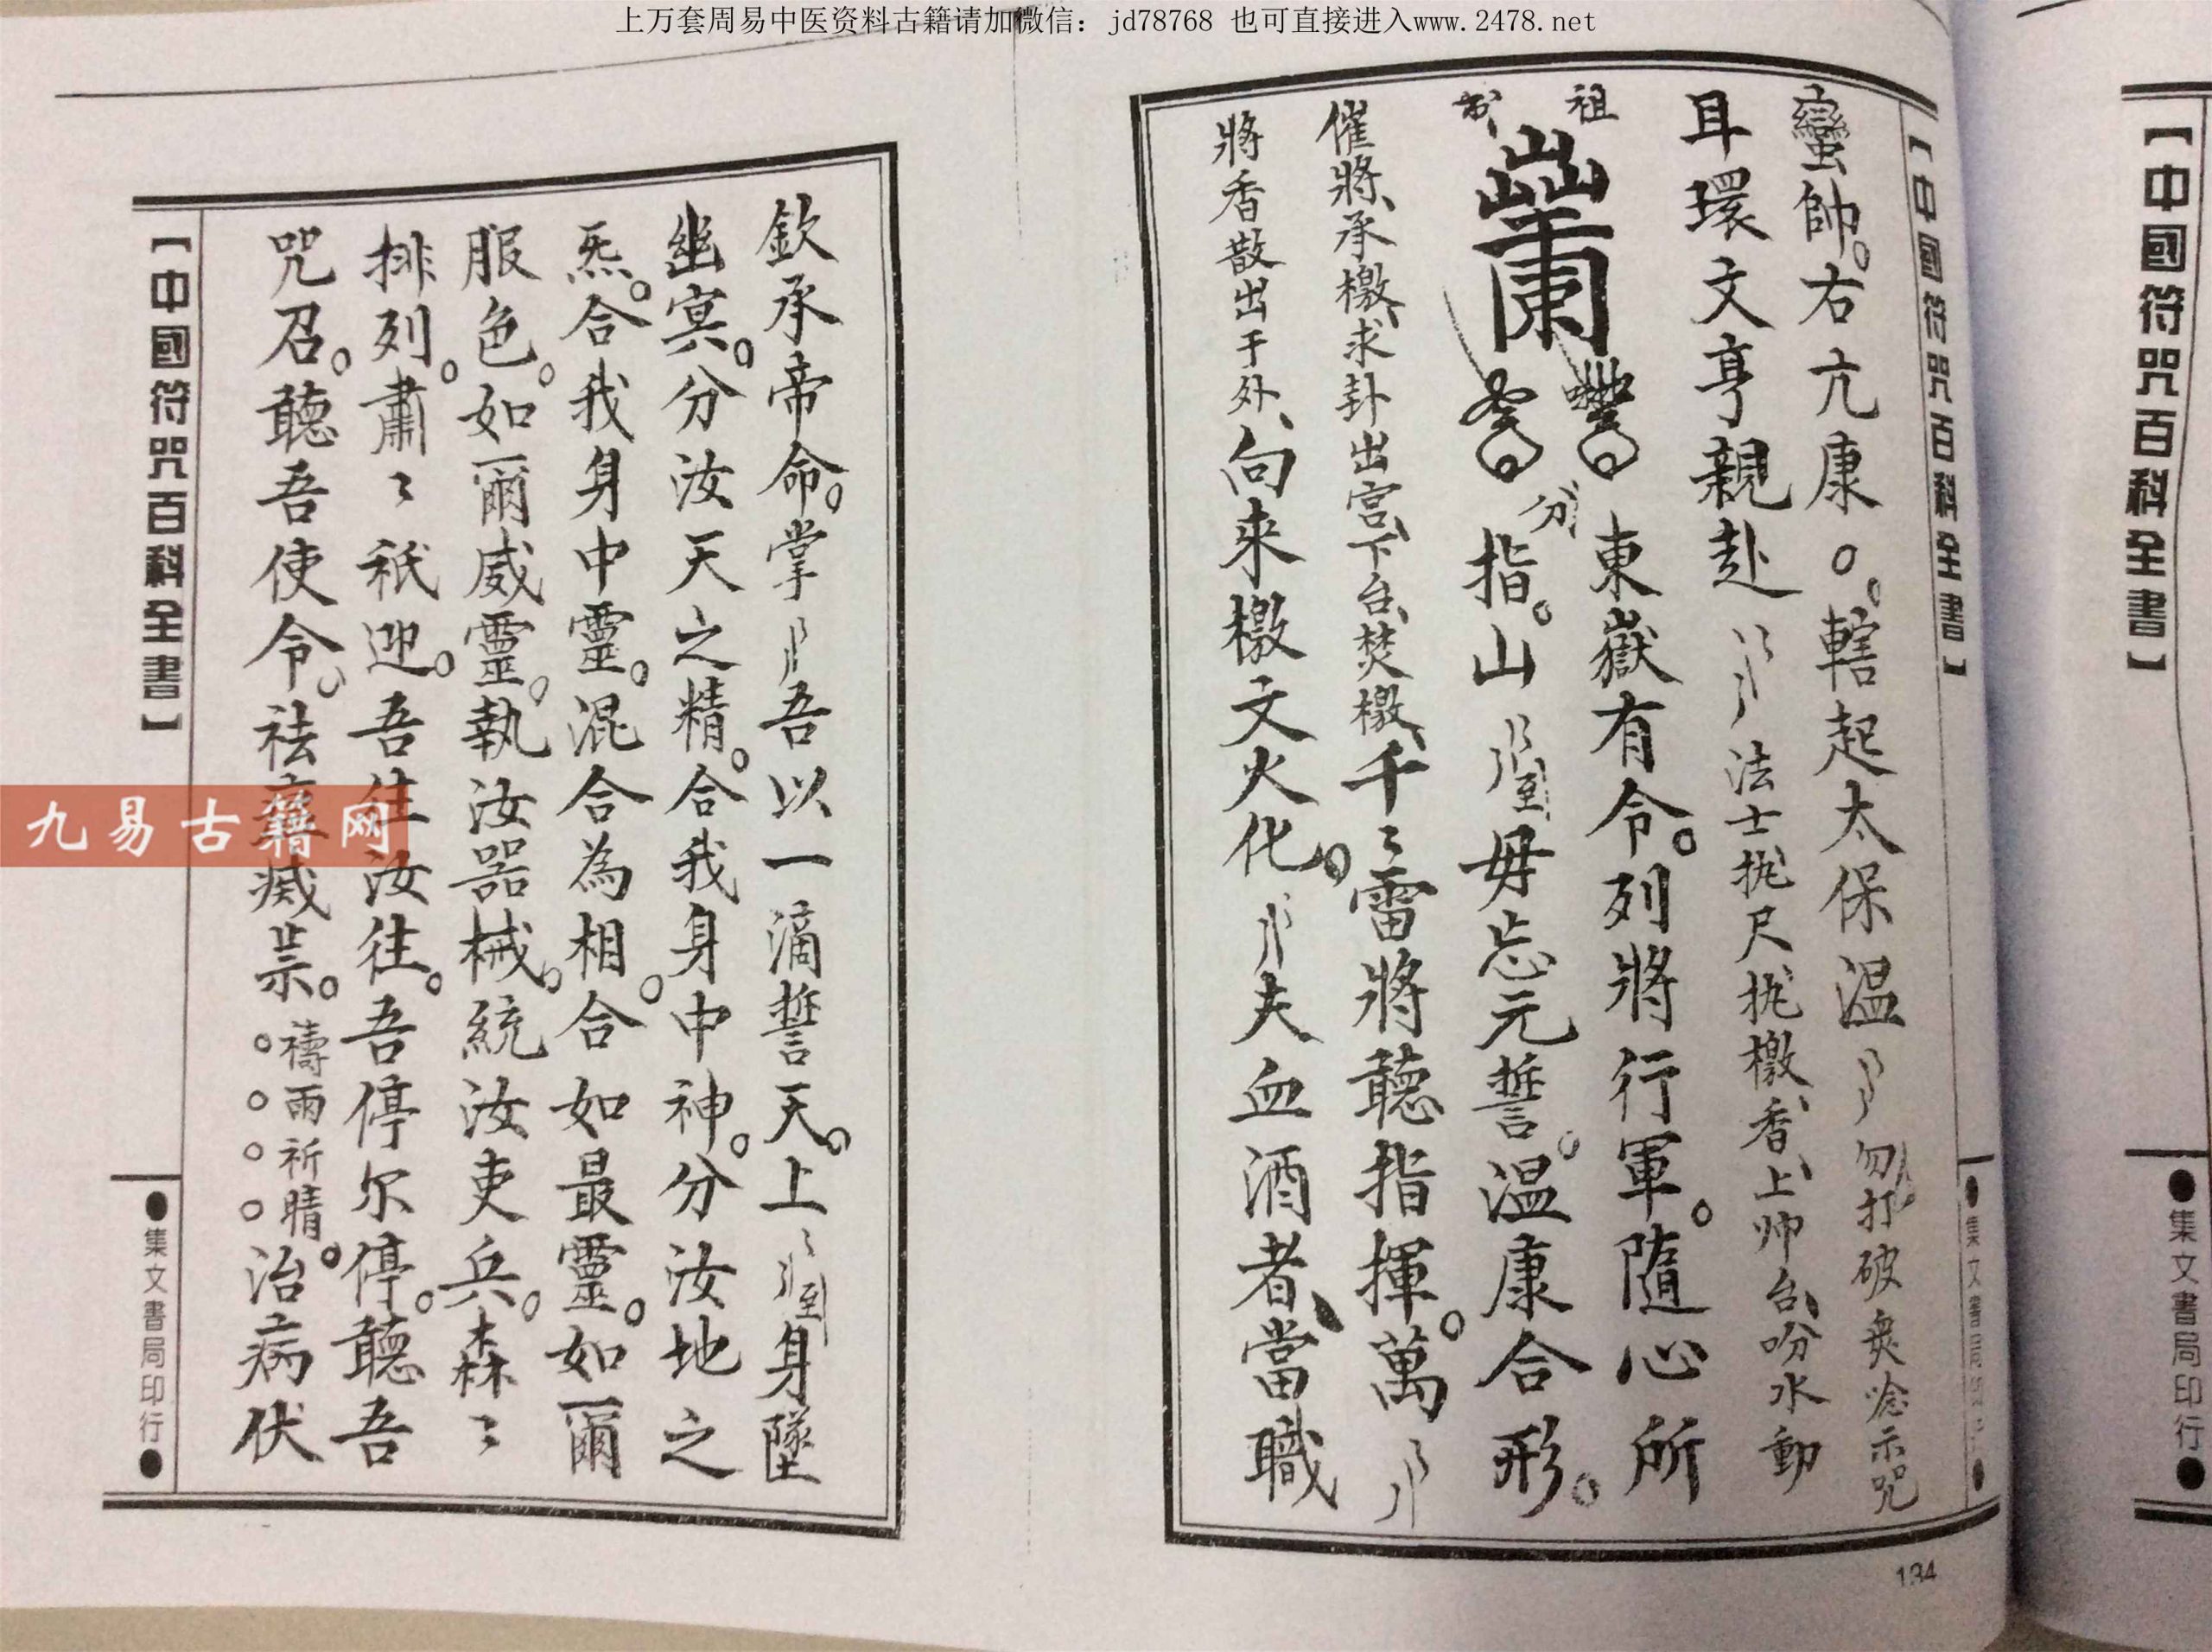 上万套周易中医资料古籍请加微信：jd78768 也可直接进入www.2478.net
【中國符咒百科全書】
●集文書局印行●
【中國符咒百科全書】
●集文書局
蠻帥。右亢康○。轄起太保温 勿打破 唸示咒
耳環文亨親赴 法士执尺执檄香、上帅台、吩水動
祖
東嶽有令。列將行軍。隨心所
分
指。山 到 毋忘元誓。温康合形。
催將、承檄、求卦出宫、下台、焚檄、千〻雷將聽指揮。萬
將香散出于外、向来檄文火化。 夫血酒者、當職
134
欽承帝命。掌 吾以一滴誓天。上〻 到 身墜
幽冥。分汝天之精。合我身中神。分汝地之
炁。合我身中靈。混合為相。合如最靈。如爾
服色。如爾威靈。執汝器械。統汝吏兵。森〻
排列。肅〻祇迎。吾往汝往。吾停尔停。聽吾
咒召。聽吾使令。祛 滅祟。○○○○禱雨祈晴。治病伏
【中國符咒百科全書】
●集文書局印行●
九易古籍网